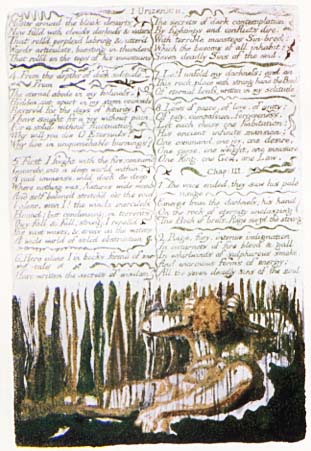 I Urizen: C: II
around the bleak desarts
Now fill'd with clouds, darkness & waters
That roll'd perplex'd labring & utter'd
Words articulate, bursting in thunders
That roll'd on the tops of his mountains
4: From the depths of dark solitude.
From
The eternal abode in my holiness,
Hidden, set apart in my stern counsels
Reserv'd for the days of futurity,
I have sought for a joy without pain,
For a solid without fluctuation
Why will you die O Eternals?
Why live in unquenchable burnings?
5 First I fought with the fire; consum'd
Inwards, into a deep world within:
A void immense, wild dark & deep,
Where nothing was; Natures wide womb
And self balanc'd stretch'd o'er the void
I alone, even I! the winds merciless
Bound; but condensing, in torrents
They fall & fall; strong, I repell'd
The vast waves, & arose on the waters
A wide world of solid obstruction
6. Here alone I in books form'd of me-
-tals
Have written the secrets of wisdom
The secrets of dark contemplation
By fightings and conflicts dire,
With terrible monsters Sin-bred:
Which the bosoms of all inhabit;
Seven deadly Sins of the soul.
7. Lo! I unfold my darkness: and on
This rock, place with strong hand the Book
Of eternal brass, written in my solitude.
8. Laws of peace, of love, of unity:
Of pity, compassion, forgiveness.
Let each chuse one habitation:
His ancient infinite mansion:
One command, one joy, one desire,
One curse, one weight, one measure
One King, one God, one Law.
Chap: III.
1. The voice ended, they saw his pale
visage
Emerge from the darkness; his hand
On the rock of eternity unclasping
The Book of brass. Rage siez'd the strong
2. Rage, fury, intense indignation
In cataracts of fire blood & gall
In whirlwinds of sulphurous smoke:
And enormous forms of energy;
All the seven deadly sins of the soul